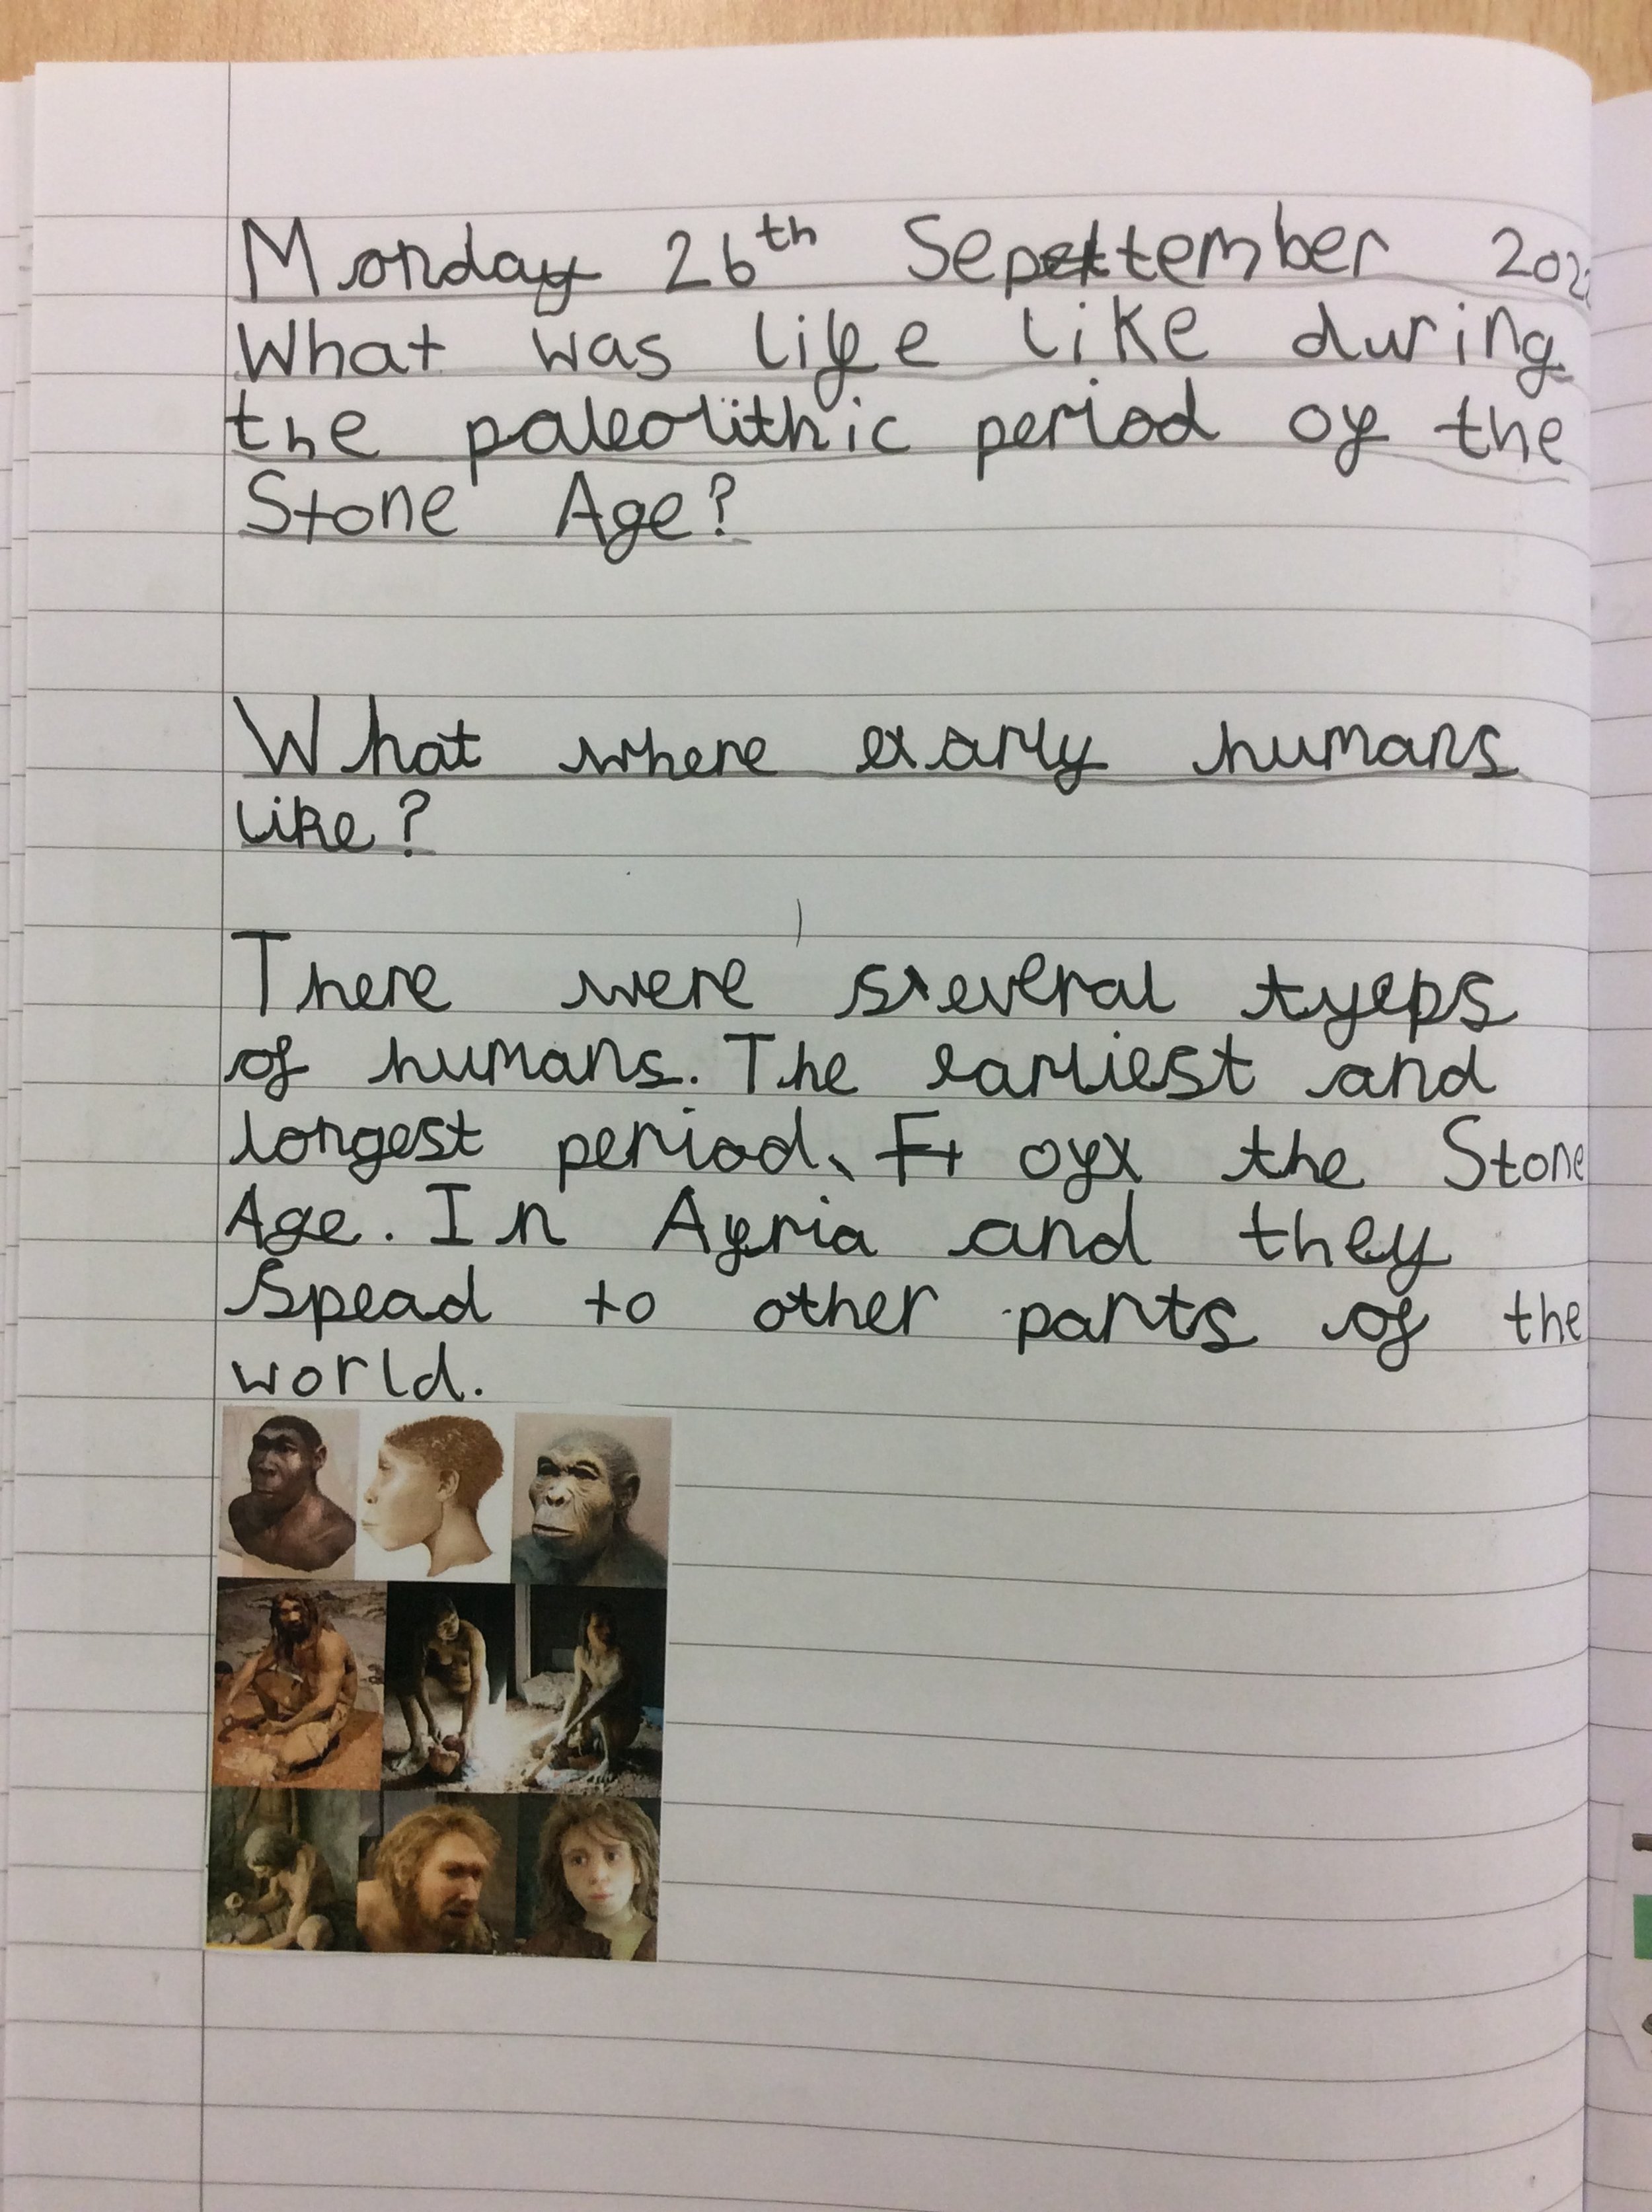 Monday 26th September 202
What was life like during
the paleolithic period of the
Stone Age?
What where early humans
like?
There were several tyeps
of humans. The earliest and
longest period. of the Stone
Age. In Afria and they
spead to other parts of the
world.